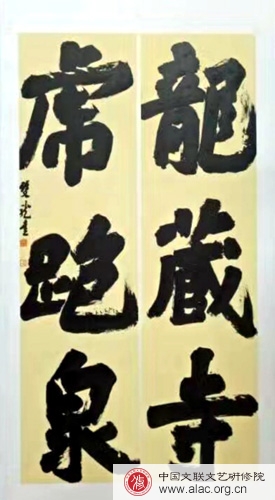 龍藏寺
虎跑泉
中国文联文艺研修院
www.alac.org.cn